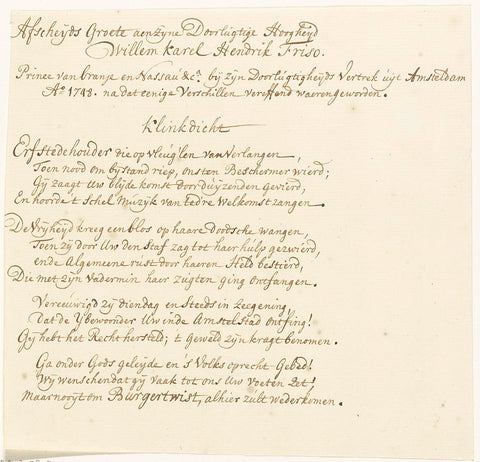 Afscheyds Groete aenzyne Doorlugtige Hoogheyd
Willem Karel Hendrik Friso.
Prince van Oranje en Nassau &c. by zyn Doorlugtigheyds Vertrek uyt Amsteldam
Ao 1748. na dat eenige Verschillen vereffend waeren geworden.
Klinkdicht
Erfstedehouder die op vleug'len van Verlangen,
Toen nood om bystand riep, onsten Beschermer wierd;
Gy zaagt Uw blyde komst door duyzenden gevierd,
En hoorde 't schel Muzyk van tedre Welkomstzangen.
De Vryheyd kreeg een blos op haare doodsche wangen,
Toen zy door Uw den Staf zag tot haer hulp gezwierd,
ende Algemeene rust door haeren Held bestierd,
Die met zyn Vadermin haer zugten ging ontfangen.
Vereeuwigd zy die dag en Steeds in zeegening,
Dat de Ybewoonder Uw in de Amstelstad ontfing!
Gy hebt het Recht hersteld; 't geweld zyn kragt benomen.
Ga onder Gods geleyde en 's Volks oprecht Gebed!
Wy wenschen dat gy vaak tot ons Uw voeten Zet!
Maar nooyt om Burgertwist, alhier zult wederkomen.